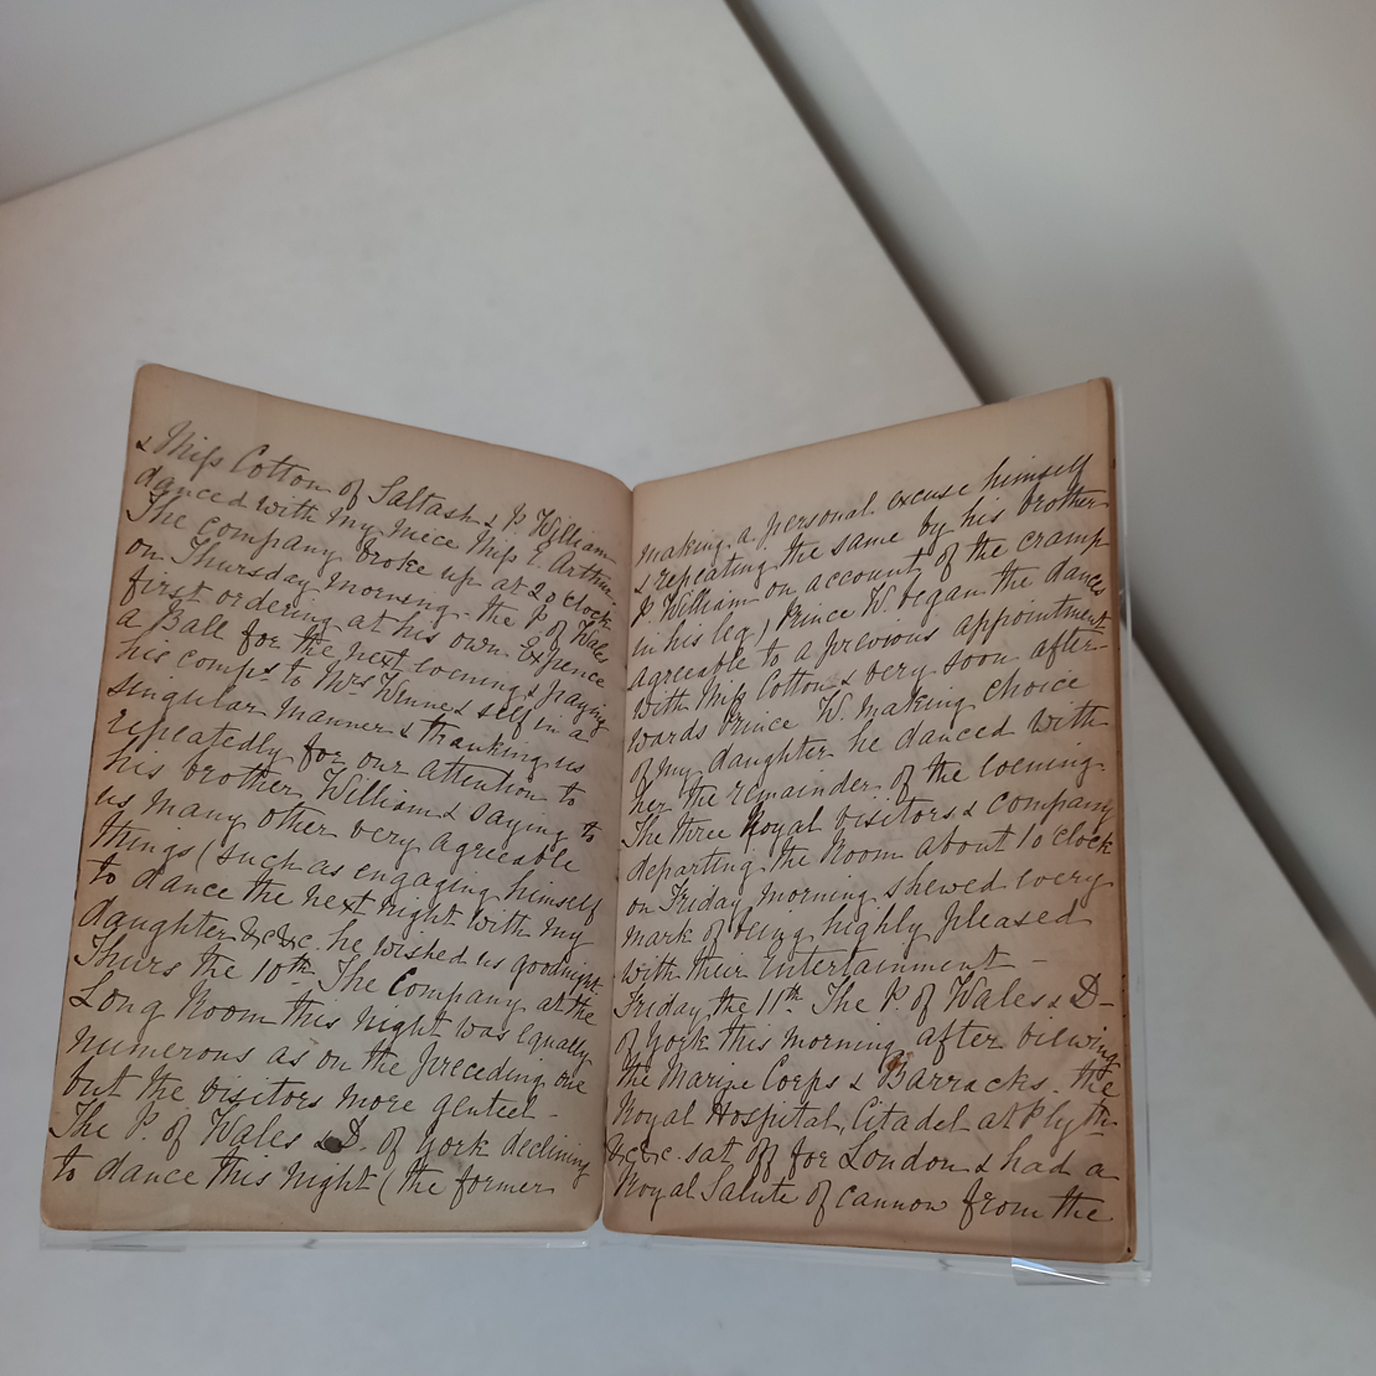 & Miss Cotton of Saltash & P. William
danced with my niece Miss E. Arthur.
The company broke up at 2 o clock
on Thursday morning - the P. of Wales
first ordering at his own Expence
a Ball for the next evening & paying
his comps. to Mrs. Winne & self in a
singular manner & thanking us
repeatedly for our attention to
his brother William & saying to
us many other very agreeable
things (such as engaging himself
to dance the next night with my
daughter &c &c. he wished us goodnight.
Thurs the 10th. The Company at the
Long Room this night was equally
numerous as on the preceding one
but the visitors more genteel -
The P. of Wales & D. of York declining
to dance this night (the former
making a personal excuse himself
& repeating the same by his brother
P. William on account of the cramp
in his leg) Prince W. began the dances
agreeable to a previous appointment
with Miss Cotton & very soon after-
wards Prince W. making choice
of my daughter he danced with
her the remainder of the evening.
The three Royal visitors & company
departing the Room about 1 o clock
on Friday morning shewed every
mark of being highly pleased
with their Entertainment -
Friday the 11th. The P. of Wales & D-
of York this morning after viewing
the Marine Corps & Barracks - the
Royal Hospital, Citadel at Plyth-
&c &c. sat off for London & had a
Royal Salute of cannon from the